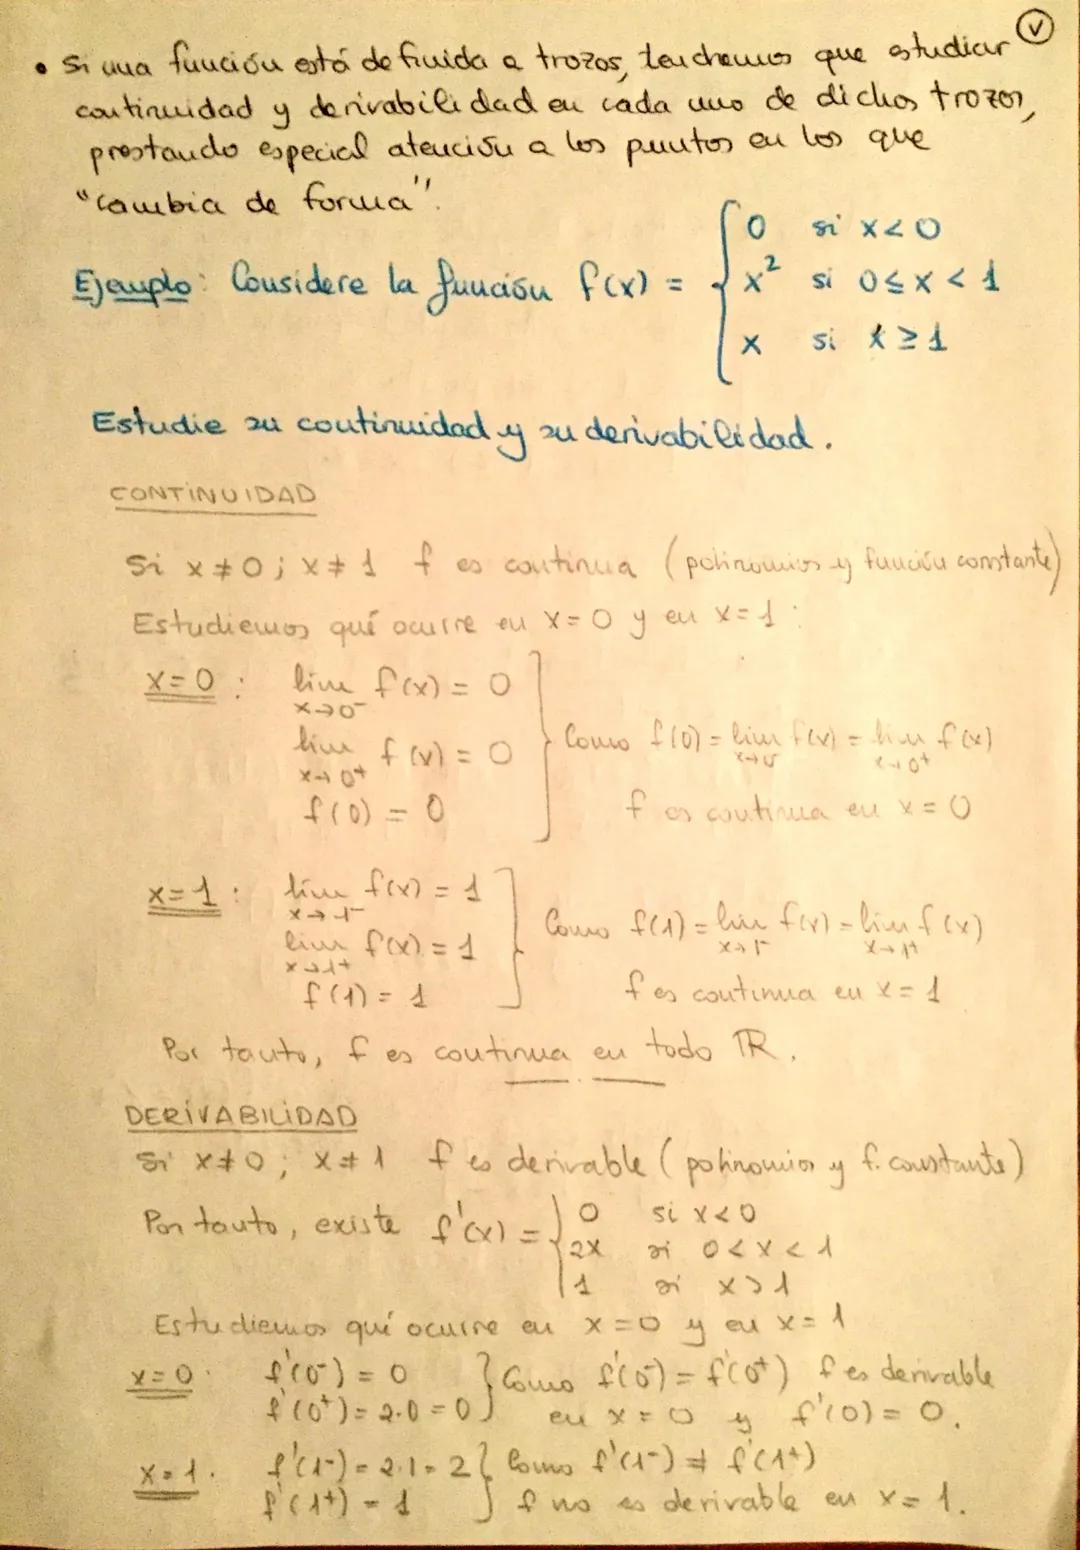 V
• Si una función está definida a trozos, tendremos que estudiar
continuidad y derivabilidad en cada uno de dichos trozos,
prestando especial atención a los puntos en los que
"cambia de forma".
Ejemplo: Considere la función f(x) = { 0 si x < 0
x² si 0 ≤ x < 1
x si x ≥ 1
Estudie su continuidad y su derivabilidad.
CONTINUIDAD
Si x ≠ 0; x ≠ 1 f es continua (polinomios y función constante)
Estudiemos qué ocurre en x = 0 y en x = 1:
x = 0 : lim x→0⁻ f(x) = 0
lim x→0⁺ f(x) = 0
f(0) = 0
} Como f(0) = lim x→0⁻ f(x) = lim x→0⁺ f(x)
f es continua en x = 0
x = 1 : lim x→1⁻ f(x) = 1
lim x→1⁺ f(x) = 1
f(1) = 1
] Como f(1) = lim x→1⁻ f(x) = lim x→1⁺ f(x)
f es continua en x = 1
Por tanto, f es continua en todo ℝ.
DERIVABILIDAD
Si x ≠ 0; x ≠ 1 f es derivable (polinomios y f. constante)
Por tanto, existe f'(x) = { 0 si x < 0
2x si 0 < x < 1
1 si x > 1
Estudiemos qué ocurre en x = 0 y en x = 1
x = 0. f'(0⁻) = 0 } Como f'(0⁻) = f'(0⁺) f es derivable
f'(0⁺) = 2·0 = 0 en x = 0 y f'(0) = 0.
x = 1. f'(1⁻) = 2·1 = 2 } Como f'(1⁻) ≠ f'(1⁺)
f'(1⁺) = 1 f no es derivable en x = 1.